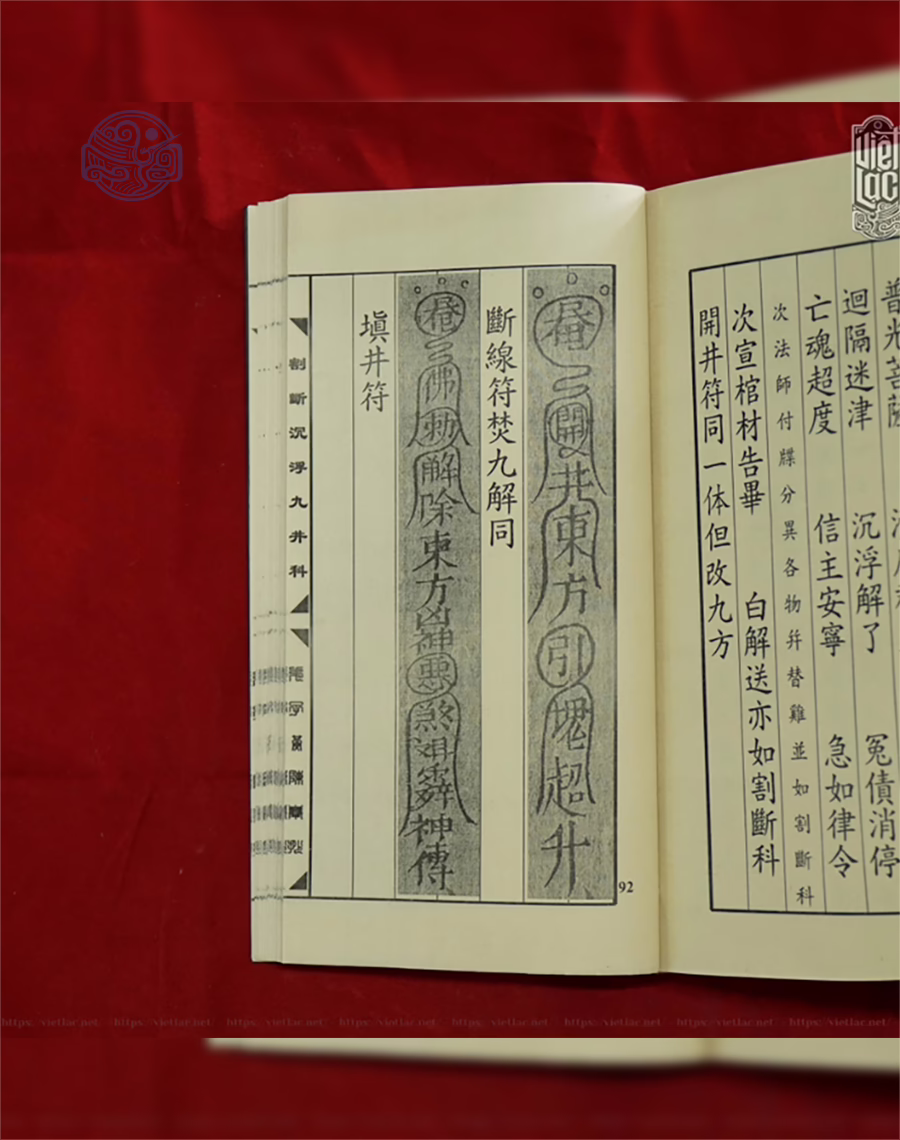 普光菩薩
迴隔迷津 沉浮解了 冤債消停
亡魂超度 信主安寧 急如律令
次法師付牒分異各物幷替雞並如割斷科
次宣棺材告畢 白解送亦如割斷科
開井符同一体但改九方
開井東方引魂超升
斷線符焚九解同
佛勅解除東方凶神惡煞
神傳
塡井符
割斷沉浮九井科
92
Việt Lạc
https://vietlac.net https://vietlac.net https://vietlac.net https://vietlac.net https://vietlac.net https://vietlac.net https://vietlac.net https://vietlac.net